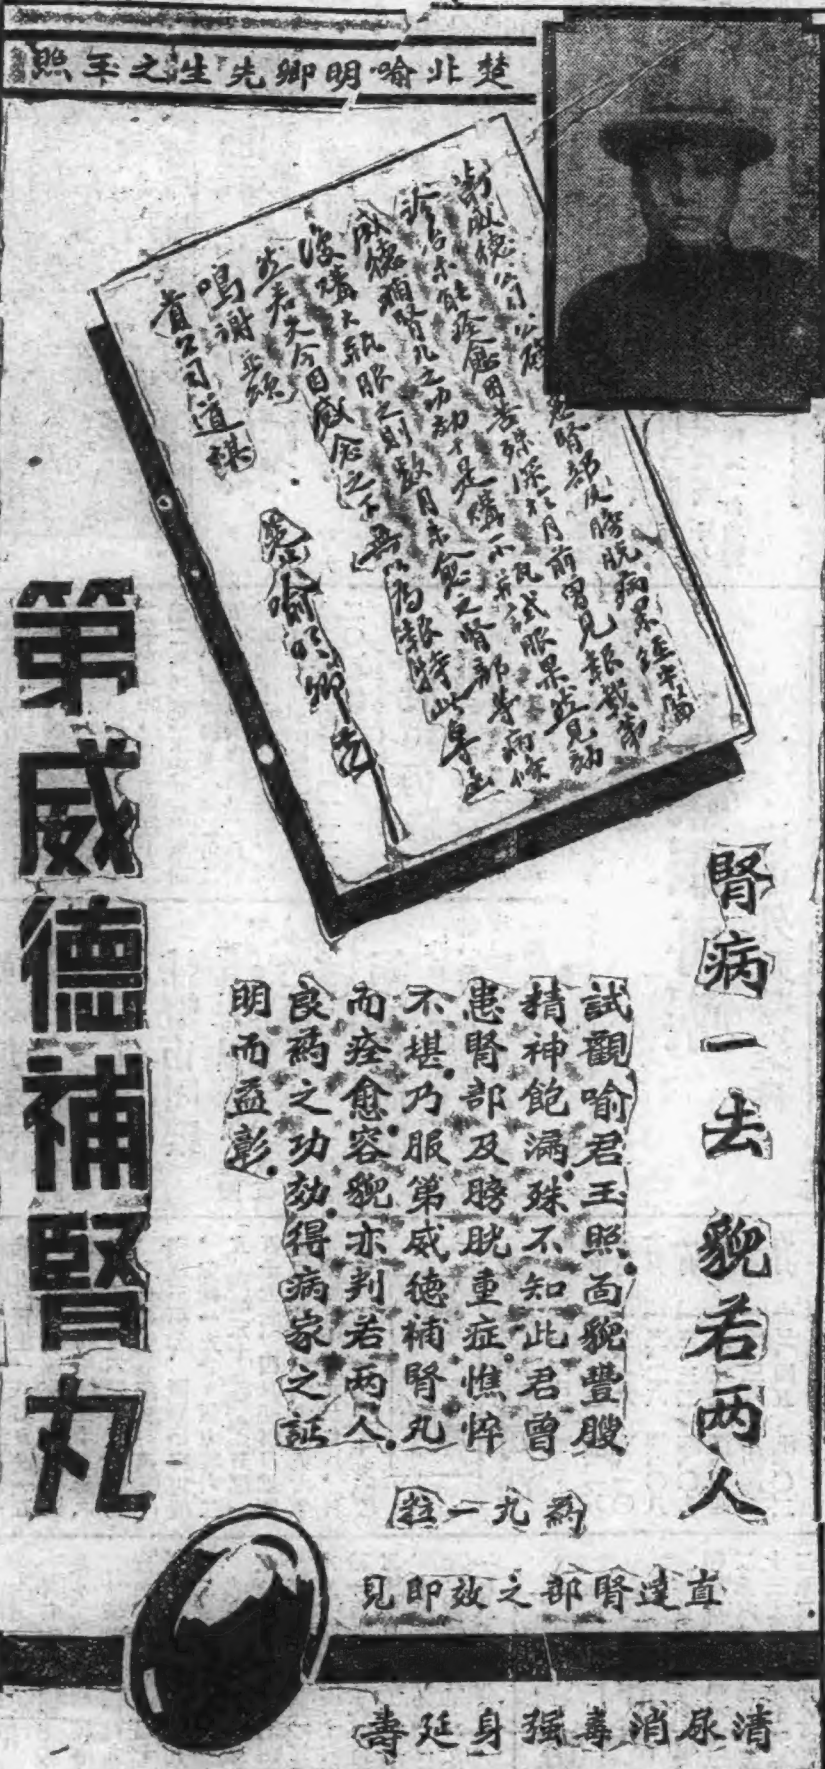 楚北喻明卿先生之玉照
第威德公司公鑒
患腎部及膀胱病累經中醫
診治未能痊愈因苦殊深於月前曾見報載第
威德補腎丸之功効于是購一小瓶試服果然見効
後購大瓶服之則數月未愈之腎部等病倏
然若失今因感愈之下無以為報特此專函
鳴謝並頌
貴公司道祺
楚北喻明卿
腎病一去 貌若两人
試觀喻君玉照面貌豐腴
精神飽滿殊不知此君曾
患腎部及膀胱重症憔悴
不堪乃服第威德補腎丸
而痊愈容貌亦判若两人
良葯之功効得病家之証
明而益彰
第威德補腎丸
葯丸一粒
直達腎部之效即見
清尿消毒强身延壽